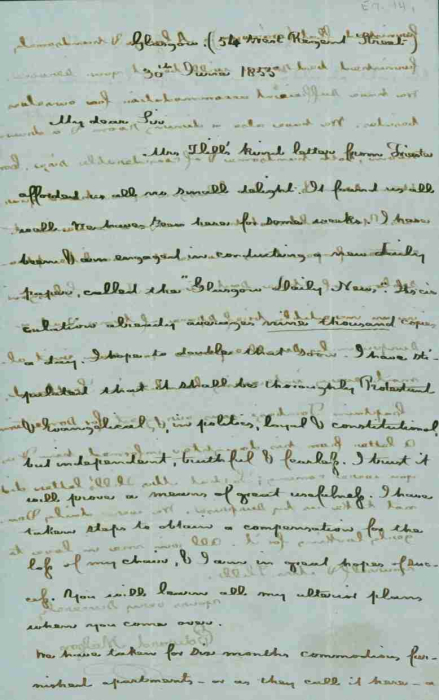 E7. 141
Glasgow. (54 West Regent Street)
30th June 1855
My dear Sir
Mrs Hill's kind letter from Trieste
afforded us all no small delight. It found us all
well. We have been here for some weeks. I have
been & am engaged in conducting a new daily
paper, called the "Glasgow Daily News". Its cir
culation already averages nine thousand copies
a day. I hope to double that soon. I have sti-
pulated that it shall be thoroughly Protestant
& evangelical, & in politics, loyal & constitutional,
but independent, truthful & fearless. I trust it
will prove a means of great usefulness. I have
taken steps to obtain a compensation for the
loss of my chair, & I am in great hopes of suc-
cess. You will learn all my ulterior plans
when you come over.
We have taken for six months commodious fur-
nished apartments - or as they call it here - a